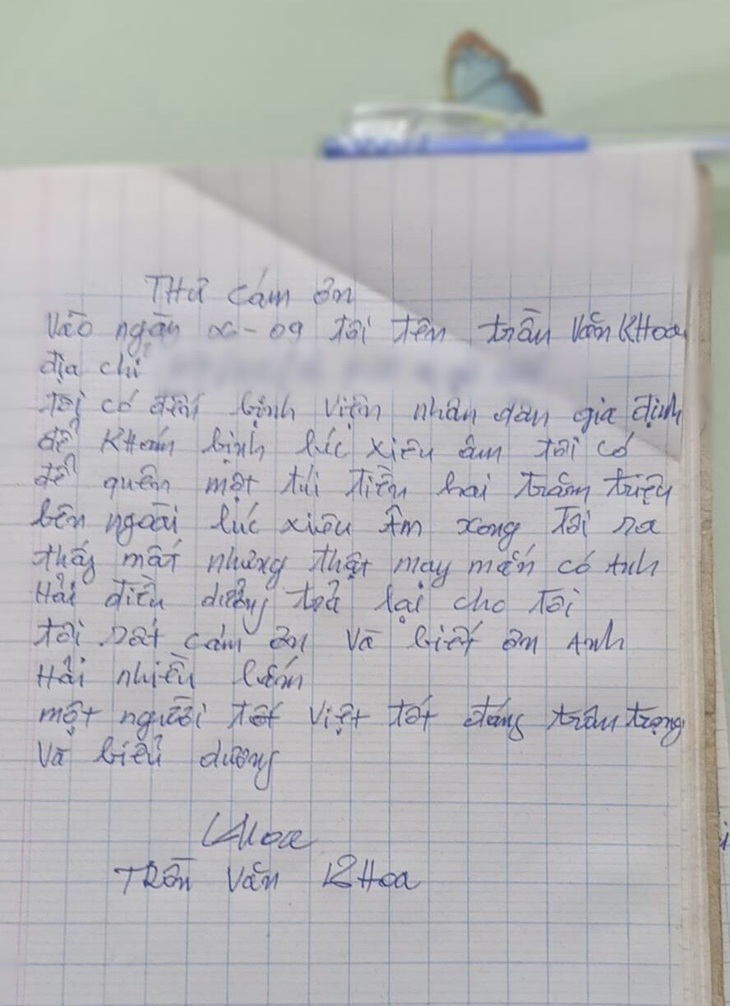 THƯ Cám ơn
Vào ngàn 06-09 tôi tên trần Văn KHoa
địa chỉ
tôi có đến bệnh viện nhân dân gia định
để KHám bệnh lúc xiêu âm tôi có
để quên một túi tiền hai trăm triệu
bên ngoài lúc xiêu Âm xong tôi ra
thấy mất nhưng thật may mắn có Anh
Hải điều dưởng trả lại cho Tôi
tôi rất cám ơn và biết ơn Anh
Hải nhiều lắm
một người tốt việt tốt đáng trân trọng
và biểu dương
Khoa
TRần Văn KHoa